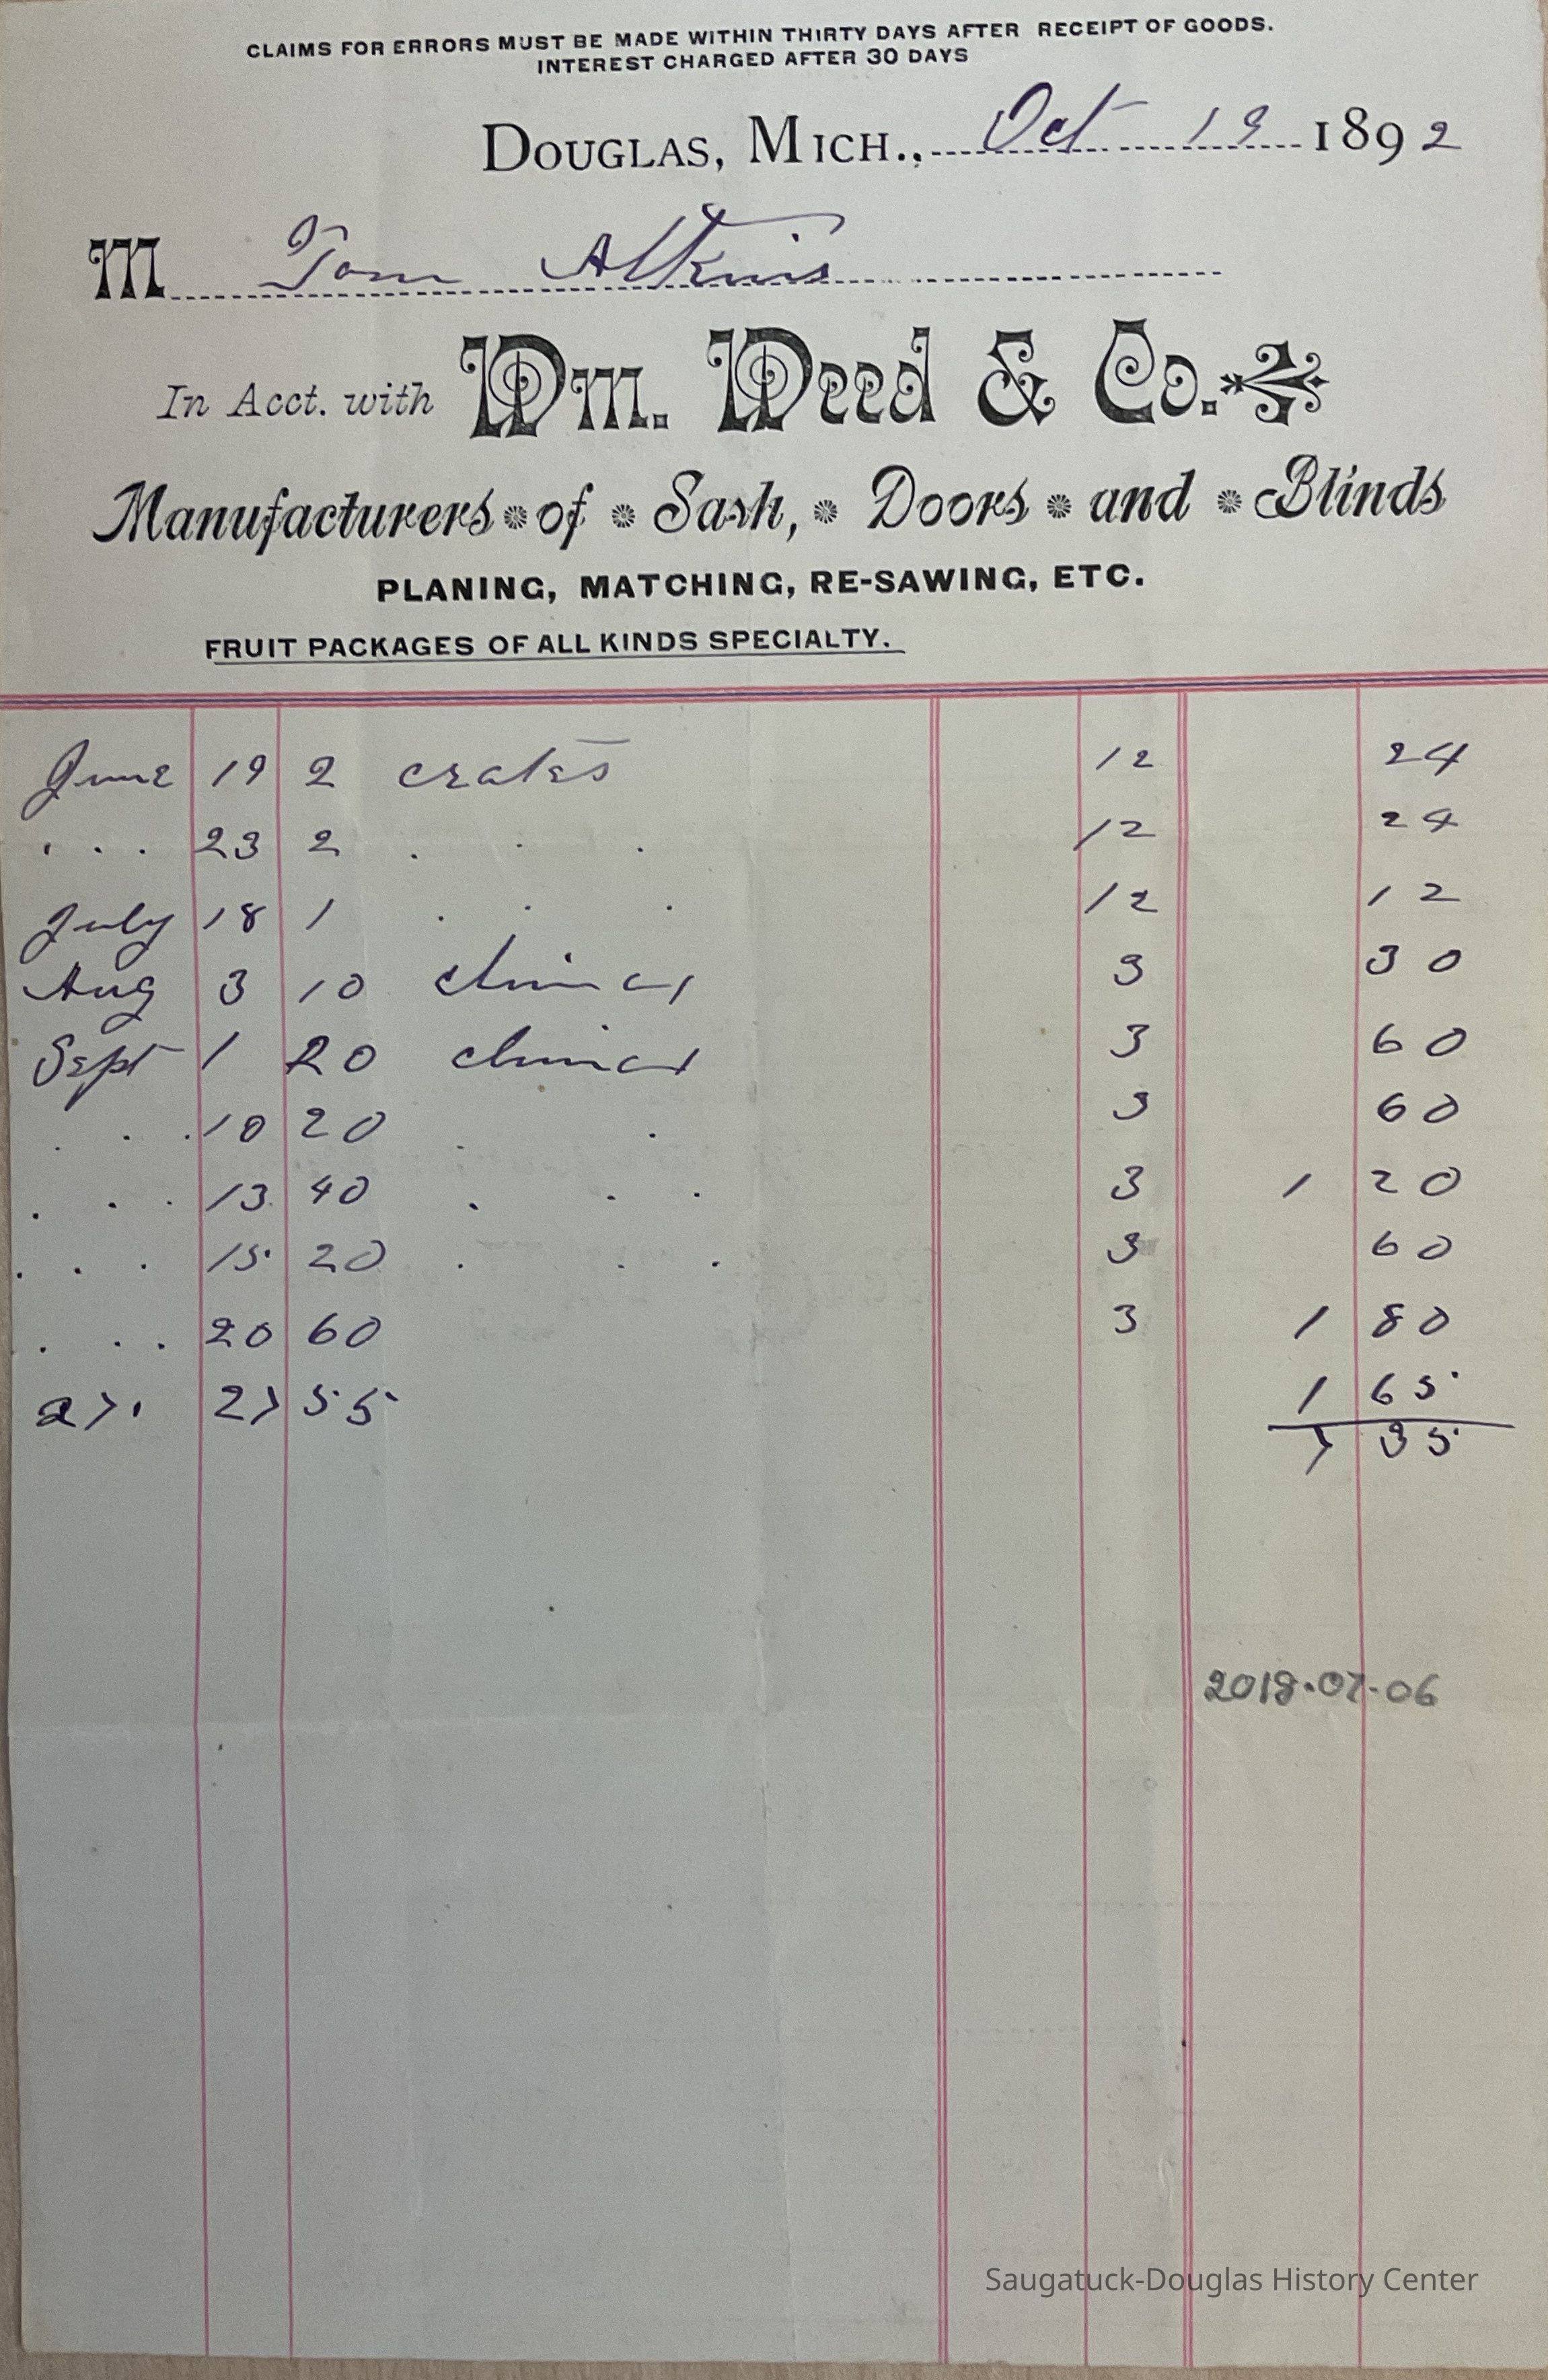 CLAIMS FOR ERRORS MUST BE MADE WITHIN THIRTY DAYS AFTER RECEIPT OF GOODS.
INTEREST CHARGED AFTER 30 DAYS
DOUGLAS, MICH., Oct 19 1892
M Tom Atkins
In Acct. with Wm. Weed & Co.
Manufacturers of Sash, Doors and Blinds
PLANING, MATCHING, RE-SAWING, ETC.
FRUIT PACKAGES OF ALL KINDS SPECIALTY.
June 19 2 crates 12 24
. . . 23 2 . . . 12 24
July 18 1 . . . 12 12
Aug 3 10 climax 3 30
Sept 1 20 climax 3 60
. . . 10 20 . . 3 60
. . . 13 40 . . . 3 1 20
. . . 15 20 . . . 3 60
. . . 20 60 3 1 80
27 55 1 65
7 35
2018.07.06
Saugatuck-Douglas History Center